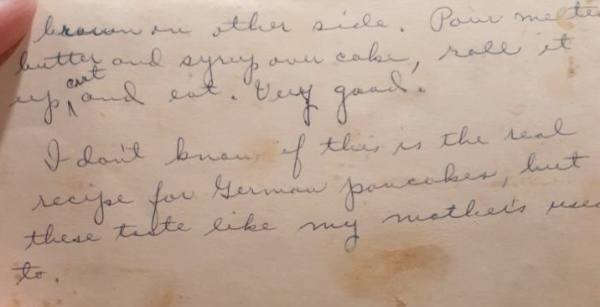 brown on other side. Pour melte
butter and syrup over cake, roll it
up cut and eat. Very good.
I don't know if this is the real
recipe for German pancakes, but
these taste like my mother's used
to.